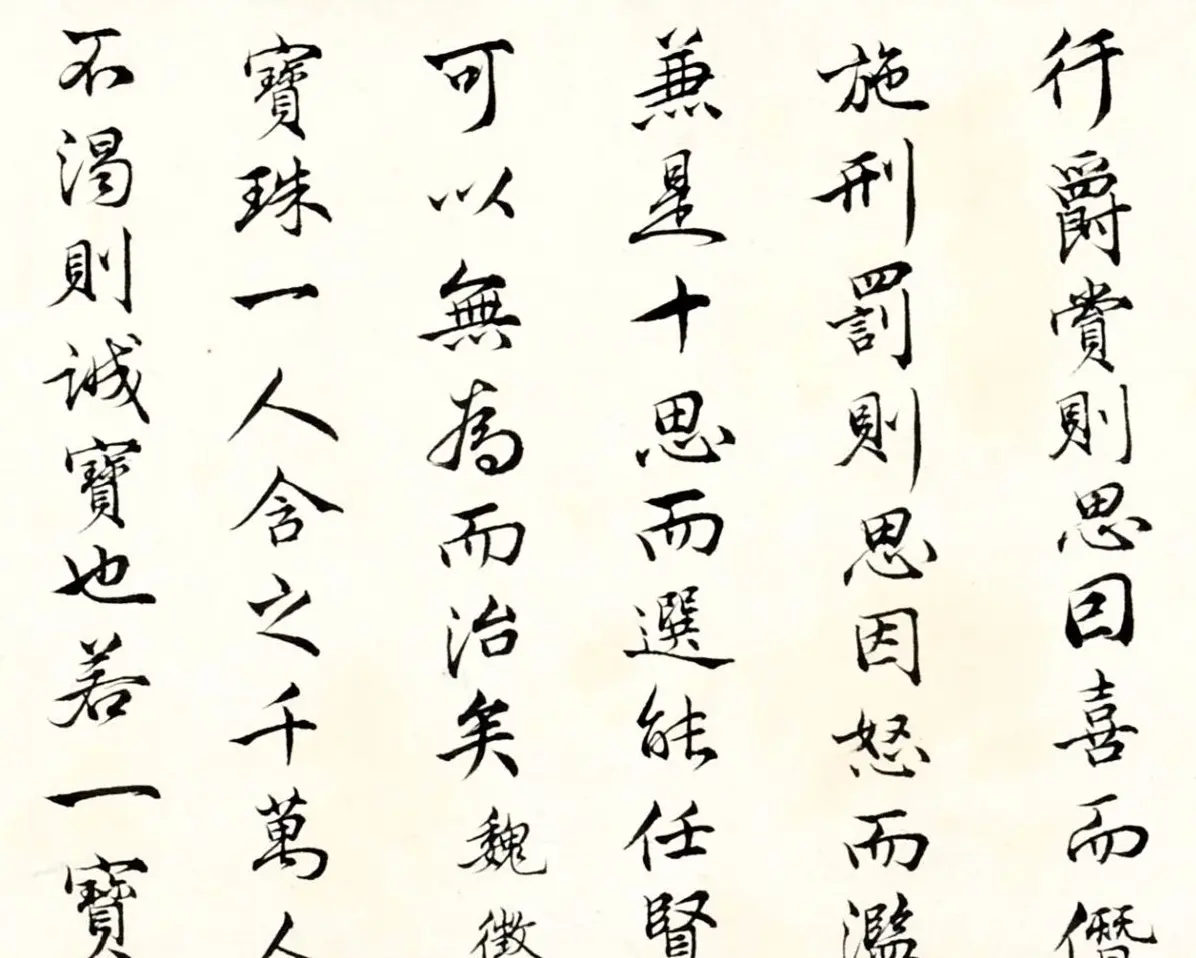 行爵賞則思因喜而僭
施刑罰則思因怒而濫
兼是十思而選能任賢
可以無為而治矣魏徵
寶珠一人含之千萬人
不渴則誠寶也若一寶